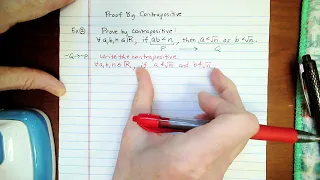 Proof By Contrapositive
Ex② Prove by contrapositive:
∀a,b,n∈ℝ, if ab≤n, then a≤√n or b≤√n.
P → Q
¬Q→¬P Write the contrapositive
∀a,b,n∈ℝ, if a≰√n and b≰√n,